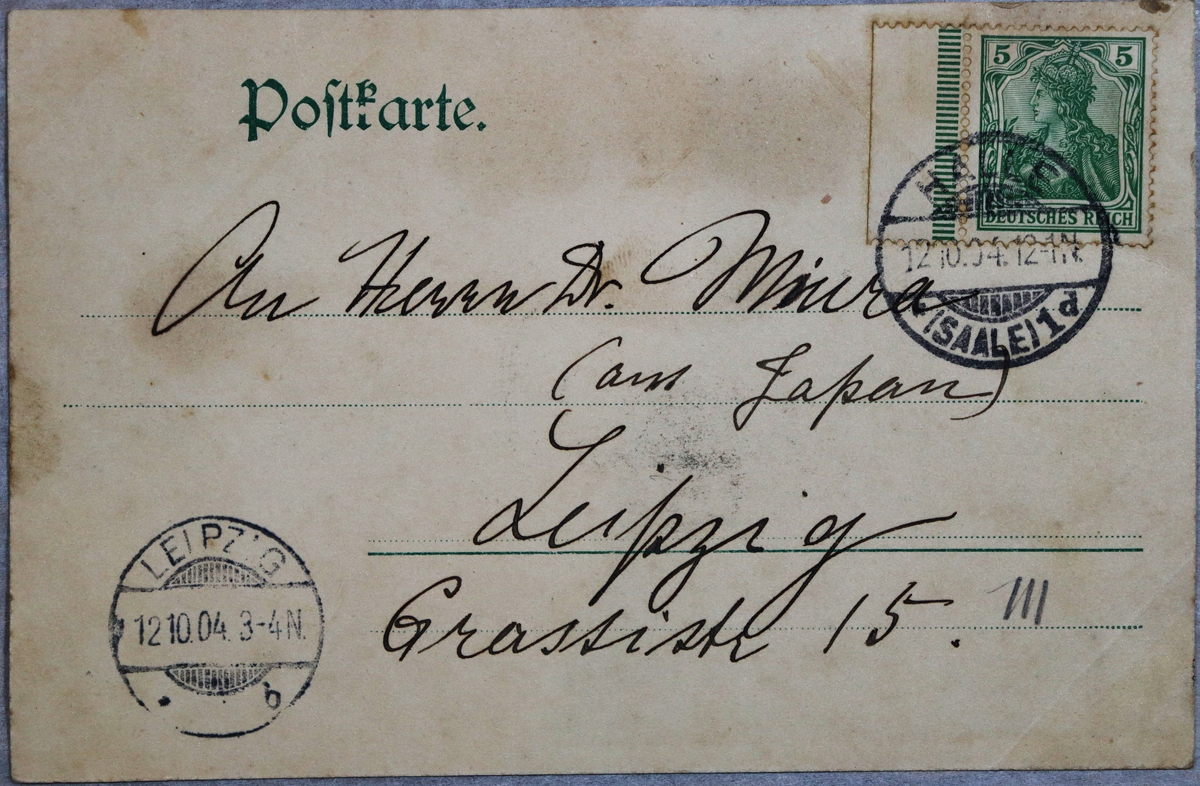 Postkarte.
5 5
DEUTSCHES REICH
HALLE
12 10.04. 12-1N.
(SAALE) 1d
An Herrn Dr. Miura
(aus Japan)
Leipzig
Grassistr 15. III
LEIPZIG
12 10.04. 3-4N.
b